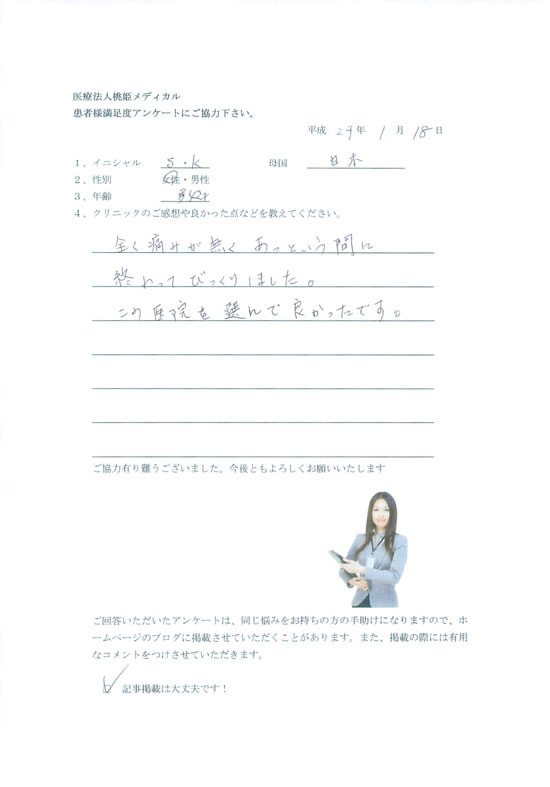 医療法人桃姫メディカル
患者様満足度アンケートにご協力下さい。
平成 29 年 1 月 18 日
1、イニシャル S・K 母国 日本
2、性別 女性・男性
3、年齢
4、クリニックのご感想や良かった点などを教えてください。
全く痛みが無く あっという間に
終わって びっくりしました。
この医院を選んで良かったです。
ご協力有り難うございました。今後ともよろしくお願いいたします
ご回答いただいたアンケートは、同じ悩みをお持ちの方の手助けになりますので、ホ
ームページのブログに掲載させていただくことがあります。また、掲載の際には有用
なコメントをつけさせていただきます。
記事掲載は大丈夫です！